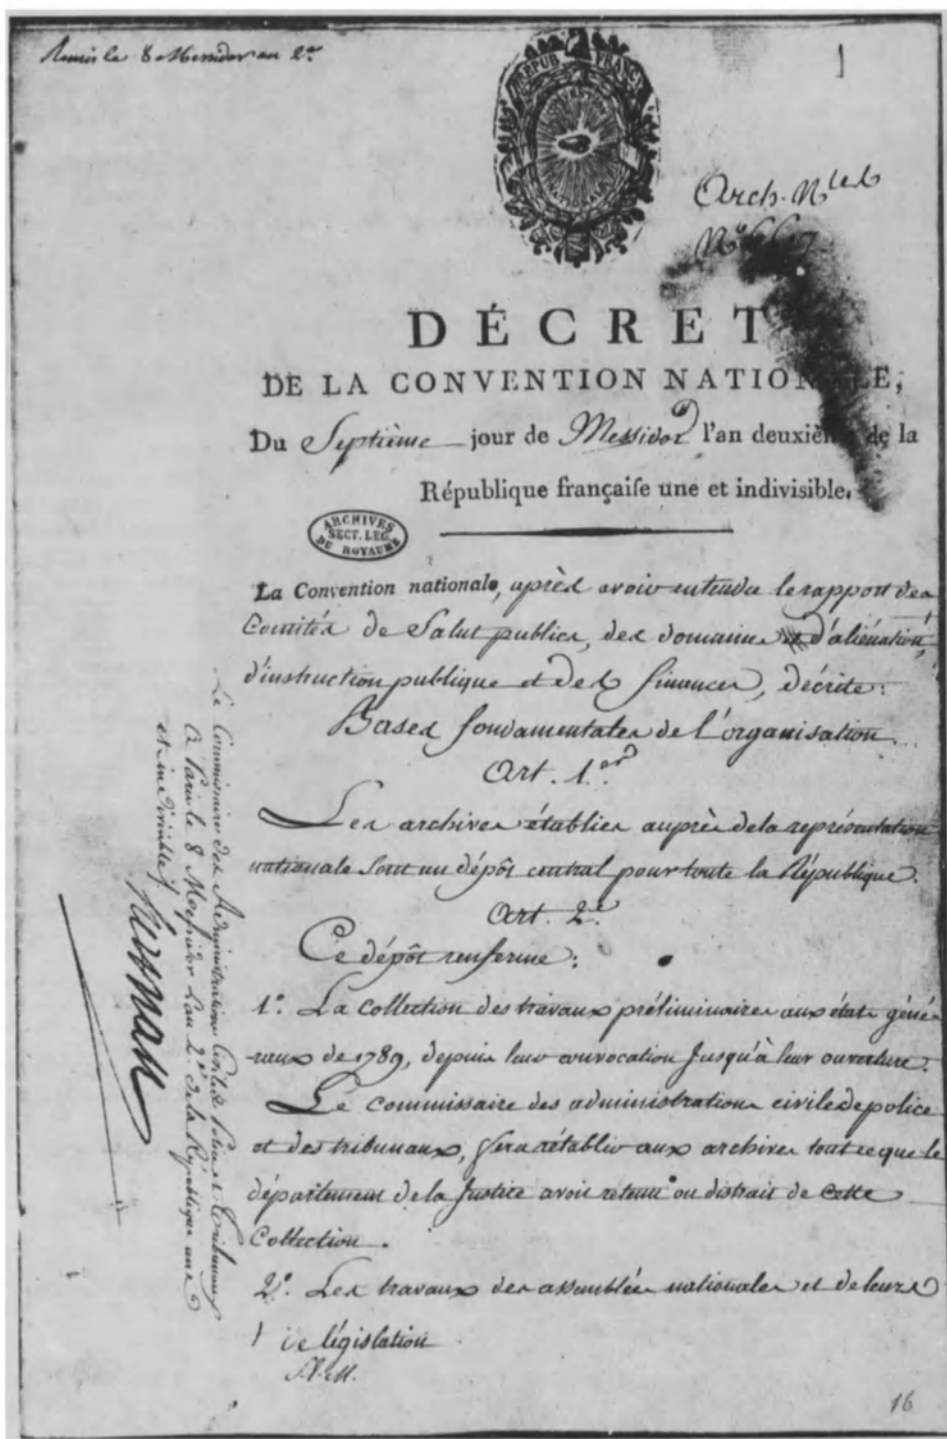 Remis le 8 Messidor an 2.e
1
RÉPUB FRANÇ
CONVENTION
NATIONALE
Arch. N.les
DÉCRET
DE LA CONVENTION NATIONALE,
Du Septième jour de Messidor l'an deuxième de la
République françaiſe une et indivisible.
ARCHIVES
SECT. LEG.
DU ROYAUME
La Convention nationale, après avoir entendu le rapport des
Comités de Salut public, des domaines et d'aliénation,
d'instruction publique et des finances, décrète:
Bases fondamentales de l'organisation.
Art. 1.er
Les archives établies auprès de la représentation
nationale sont un dépôt central pour toute la République.
Art. 2.e
Ce dépôt renferme:
1.º La collection des travaux préliminaires aux états géné-
-raux de 1789, depuis leur convocation jusqu'à leur ouverture.
Le commissaire des administrations civiles de police
et des tribunaux, fera rétablir aux archives tout ce que le
département de la Justice avoit retenu ou distrait de cette
Collection.
2.º Les travaux des assemblées nationales et de leurs
1 de législation
16
Le Commissaire des Administrations Civiles Police et Tribunaux
A Paris le 8 Messidor L'an 2.e de la République une
et indivisible
Herman